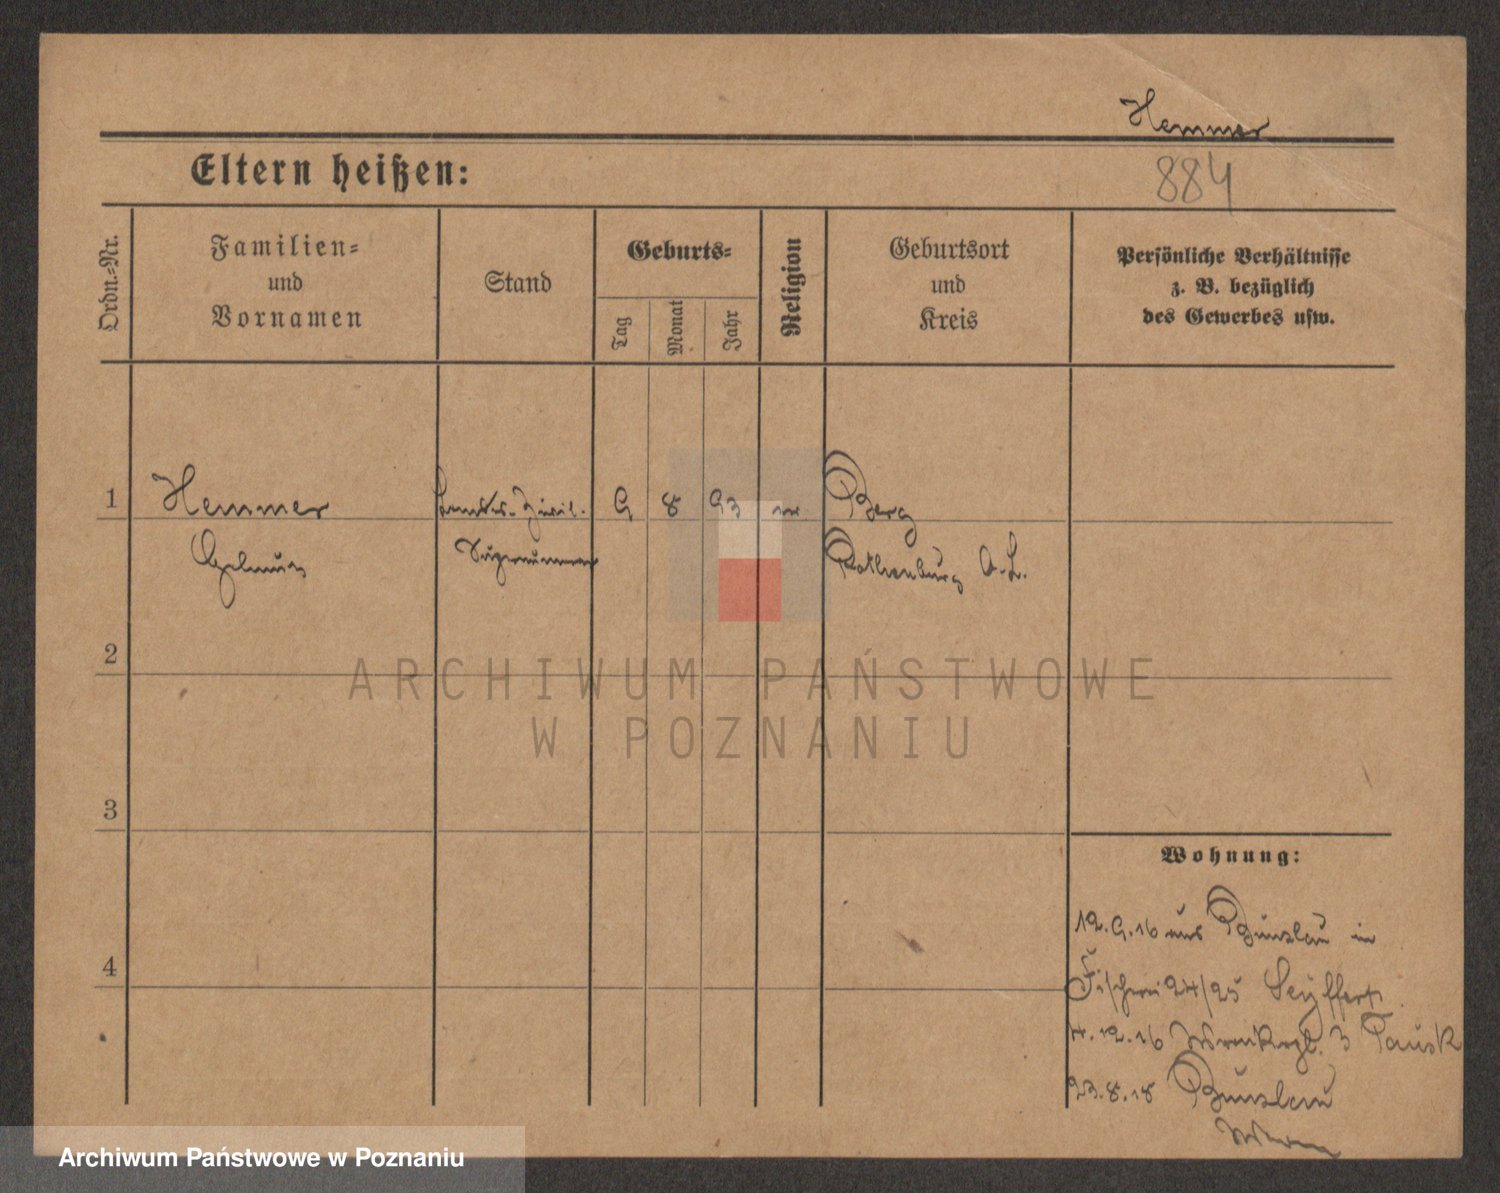 Hemmer
Eltern heißen:
884
Ordn.=Nr.
Familien=
und
Vornamen
Stand
Geburts=
Tag
Monat
Jahr
Religion
Geburtsort
und
Kreis
Persönliche Verhältnisse
z. B. bezüglich
des Gewerbes usw.
1
Hemmer
9 8 93
Berg
Supernumerar
Rothenburg O.L.
2
3
4
Wohnung:
12.9.16 aus Bunzlau in
Fischerei 24/25 Seyffert
4.12.16 3
23.8.18 Bunzlau
ARCHIWUM PAŃSTWOWE
W POZNANIU
Archiwum Państwowe w Poznaniu